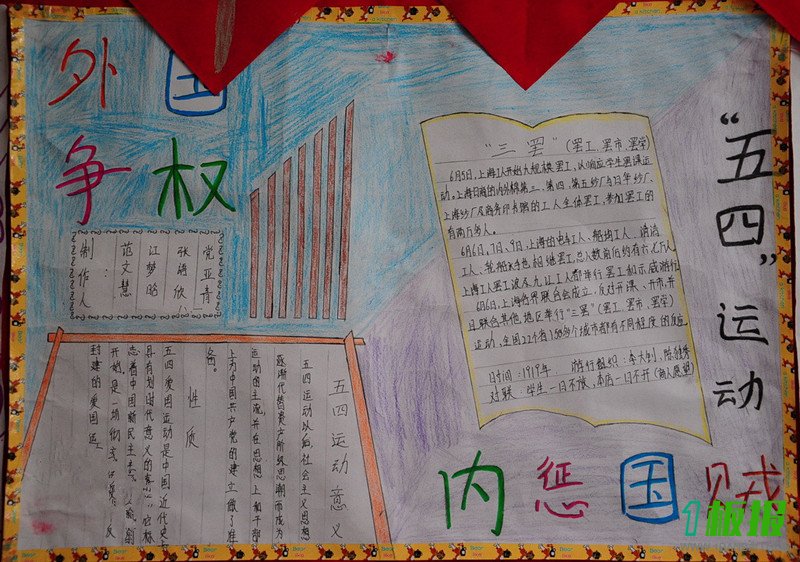 外国
争权
制作人
：
范文慧
江梦昭
张绮欣
党亚青
"五四"运动
"三罢"（罢工、罢市、罢学）
6月5日，上海工人开始大规模罢工，以响应学生罢课运
动。上海日商的内外棉第三、第四、第五纱厂与日华纱厂、
上海纱厂及商务印书馆的工人全体罢工，参加罢工的
有两万多人。
6月6日、7日、9日，上海的电车工人、船坞工人、清洁
工人、轮船水手也相继罢工总人数前后约有六七万人
上海工人罢工波及九江工人都举行罢工和示威游行
6月6日，上海各界联合会成立，反对开课、开市，并
且联合其他地区举行"三罢"（罢工、罢市、罢学）
运动，全国22个省150多个城市都有不同程度的反应
时间：1919年 游行组织：李大钊，陈独秀
对联：学生一日不放，本店一日不开（商人愿望）
五四运动意义
五四运动以后，社会主义思想
逐渐代替资产阶级思潮而成为
运动的主流，并在思想上和干部
上为中国共产党的建立做了准
备。
性质
五四爱国运动是中国近代史上
具有划时代意义的事件，它标
志着中国新民主主义
开始，是一场彻底 反
封建的爱国运
内惩国贼
1板报
Bear
like